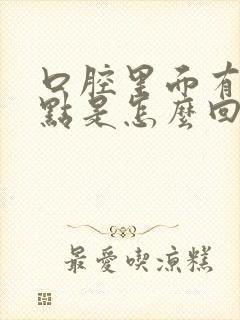 口腔里而有
點是怎麼回
最愛喫涼糕